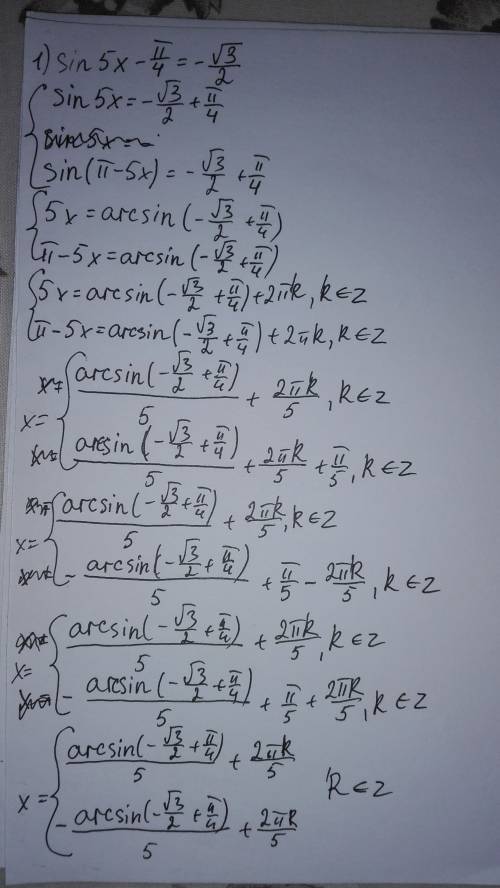 1) sin 5x - π/4 = - √3/2
{ sin 5x = - √3/2 + π/4
sin(π-5x) = - √3/2 + π/4
{ 5x = arcsin(- √3/2 + π/4)
π-5x = arcsin(- √3/2 + π/4)
{ 5x = arcsin(- √3/2 + π/4) + 2πk, k ∈ z
π-5x = arcsin(- √3/2 + π/4) + 2πk, k ∈ z
x = { arcsin(- √3/2 + π/4)/5 + 2πk/5, k ∈ z
arcsin(- √3/2 + π/4)/5 + 2πk/5 + π/5, k ∈ z
x = { arcsin(- √3/2 + π/4)/5 + 2πk/5, k ∈ z
- arcsin(- √3/2 + π/4)/5 + π/5 - 2πk/5, k ∈ z
x = { arcsin(- √3/2 + π/4)/5 + 2πk/5, k ∈ z
- arcsin(- √3/2 + π/4)/5 + π/5 + 2πk/5, k ∈ z
x = { arcsin(- √3/2 + π/4)/5 + 2πk/5
k ∈ z
- arcsin(- √3/2 + π/4)/5 + 2πk/5